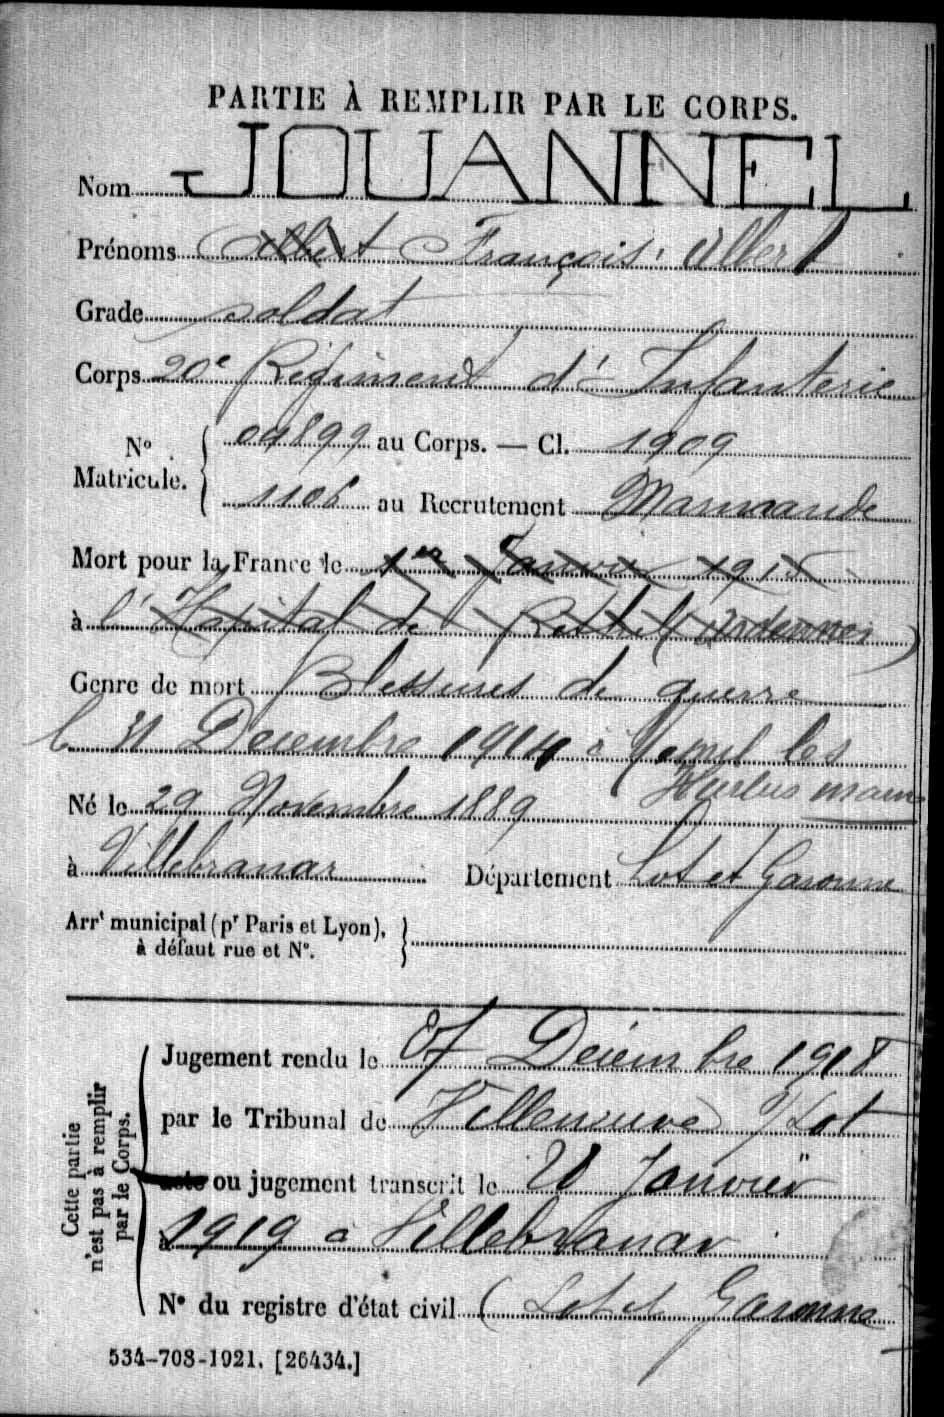 PARTIE À REMPLIR PAR LE CORPS.
Nom JOUANNEL
Prénoms Albert François, Albert
Grade soldat
Corps 20e Régiment d'Infanterie
N° Matricule. 09899 au Corps. — Cl. 1909
1106 au Recrutement Marmande
Mort pour la France le 1er Janvier 1915
à l'Hôpital de Rethel (Ardennes)
Genre de mort Blessures de guerre
le 31 Décembre 1914 à Mesnil les
Hurlus marne
Né le 29 Novembre 1889
à Villebramar Département Lot et Garonne
Arrt municipal (pr Paris et Lyon),
à défaut rue et N°.
Cette partie n'est pas à remplir par le Corps.
Jugement rendu le 27 Décembre 1918
par le Tribunal de Villeneuve s/Lot
acte ou jugement transcrit le 20 Janvier
à 1919 à Villebramar
N° du registre d'état civil (Lot et Garonne
534-708-1921. [26434.]